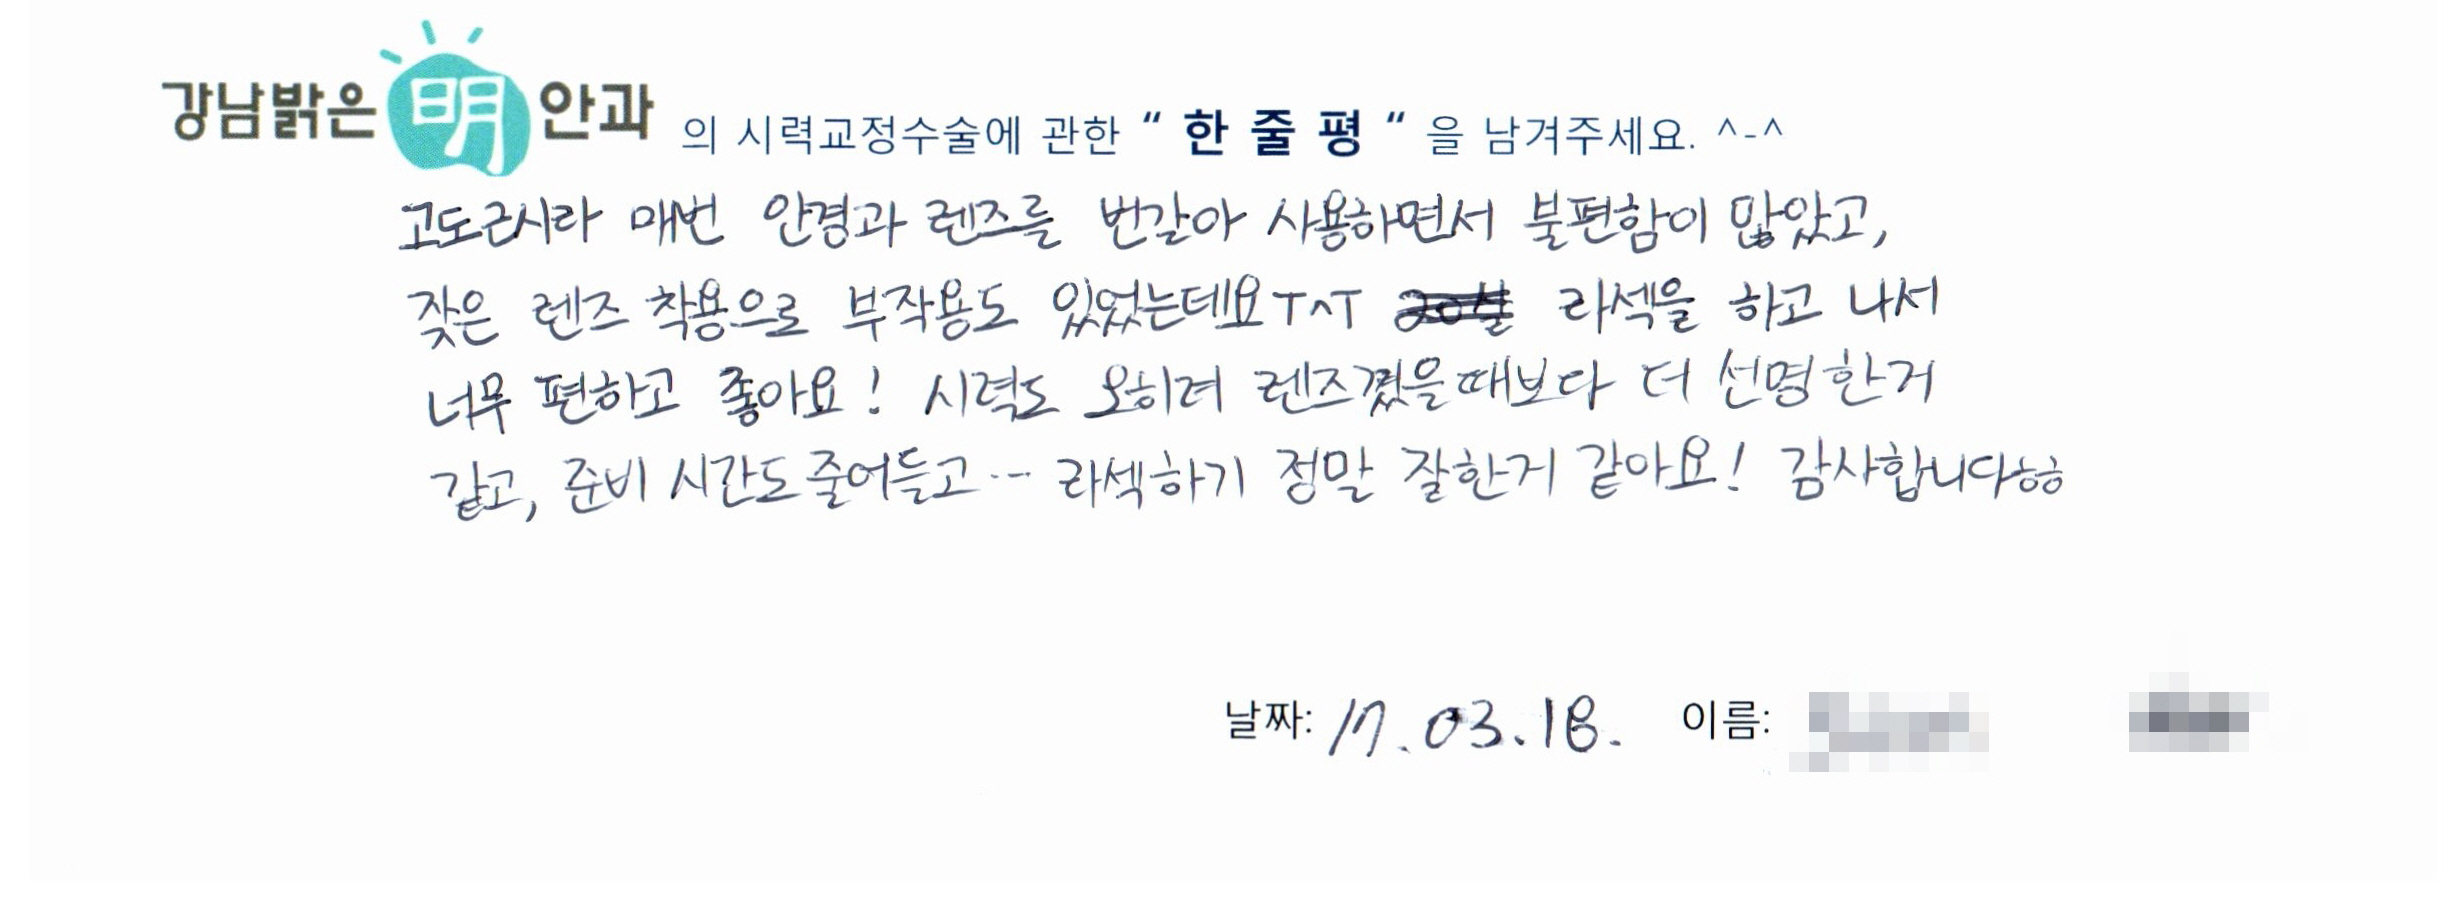 강남밝은 明 안과 의 시력교정수술에 관한 " 한 줄 평 " 을 남겨주세요. ^-^
고도근시라 매번 안경과 렌즈를 번갈아 사용하면서 불편함이 많았고,
잦은 렌즈 착용으로 부작용도 있었는데요T^T 라섹을 하고 나서
너무 편하고 좋아요! 시력도 오히려 렌즈꼈을때보다 더 선명한거
같고, 준비 시간도 줄어들고... 라섹하기 정말 잘한거 같아요! 감사합니다ㅎㅎ
날짜: 17. 03. 18. 이름: